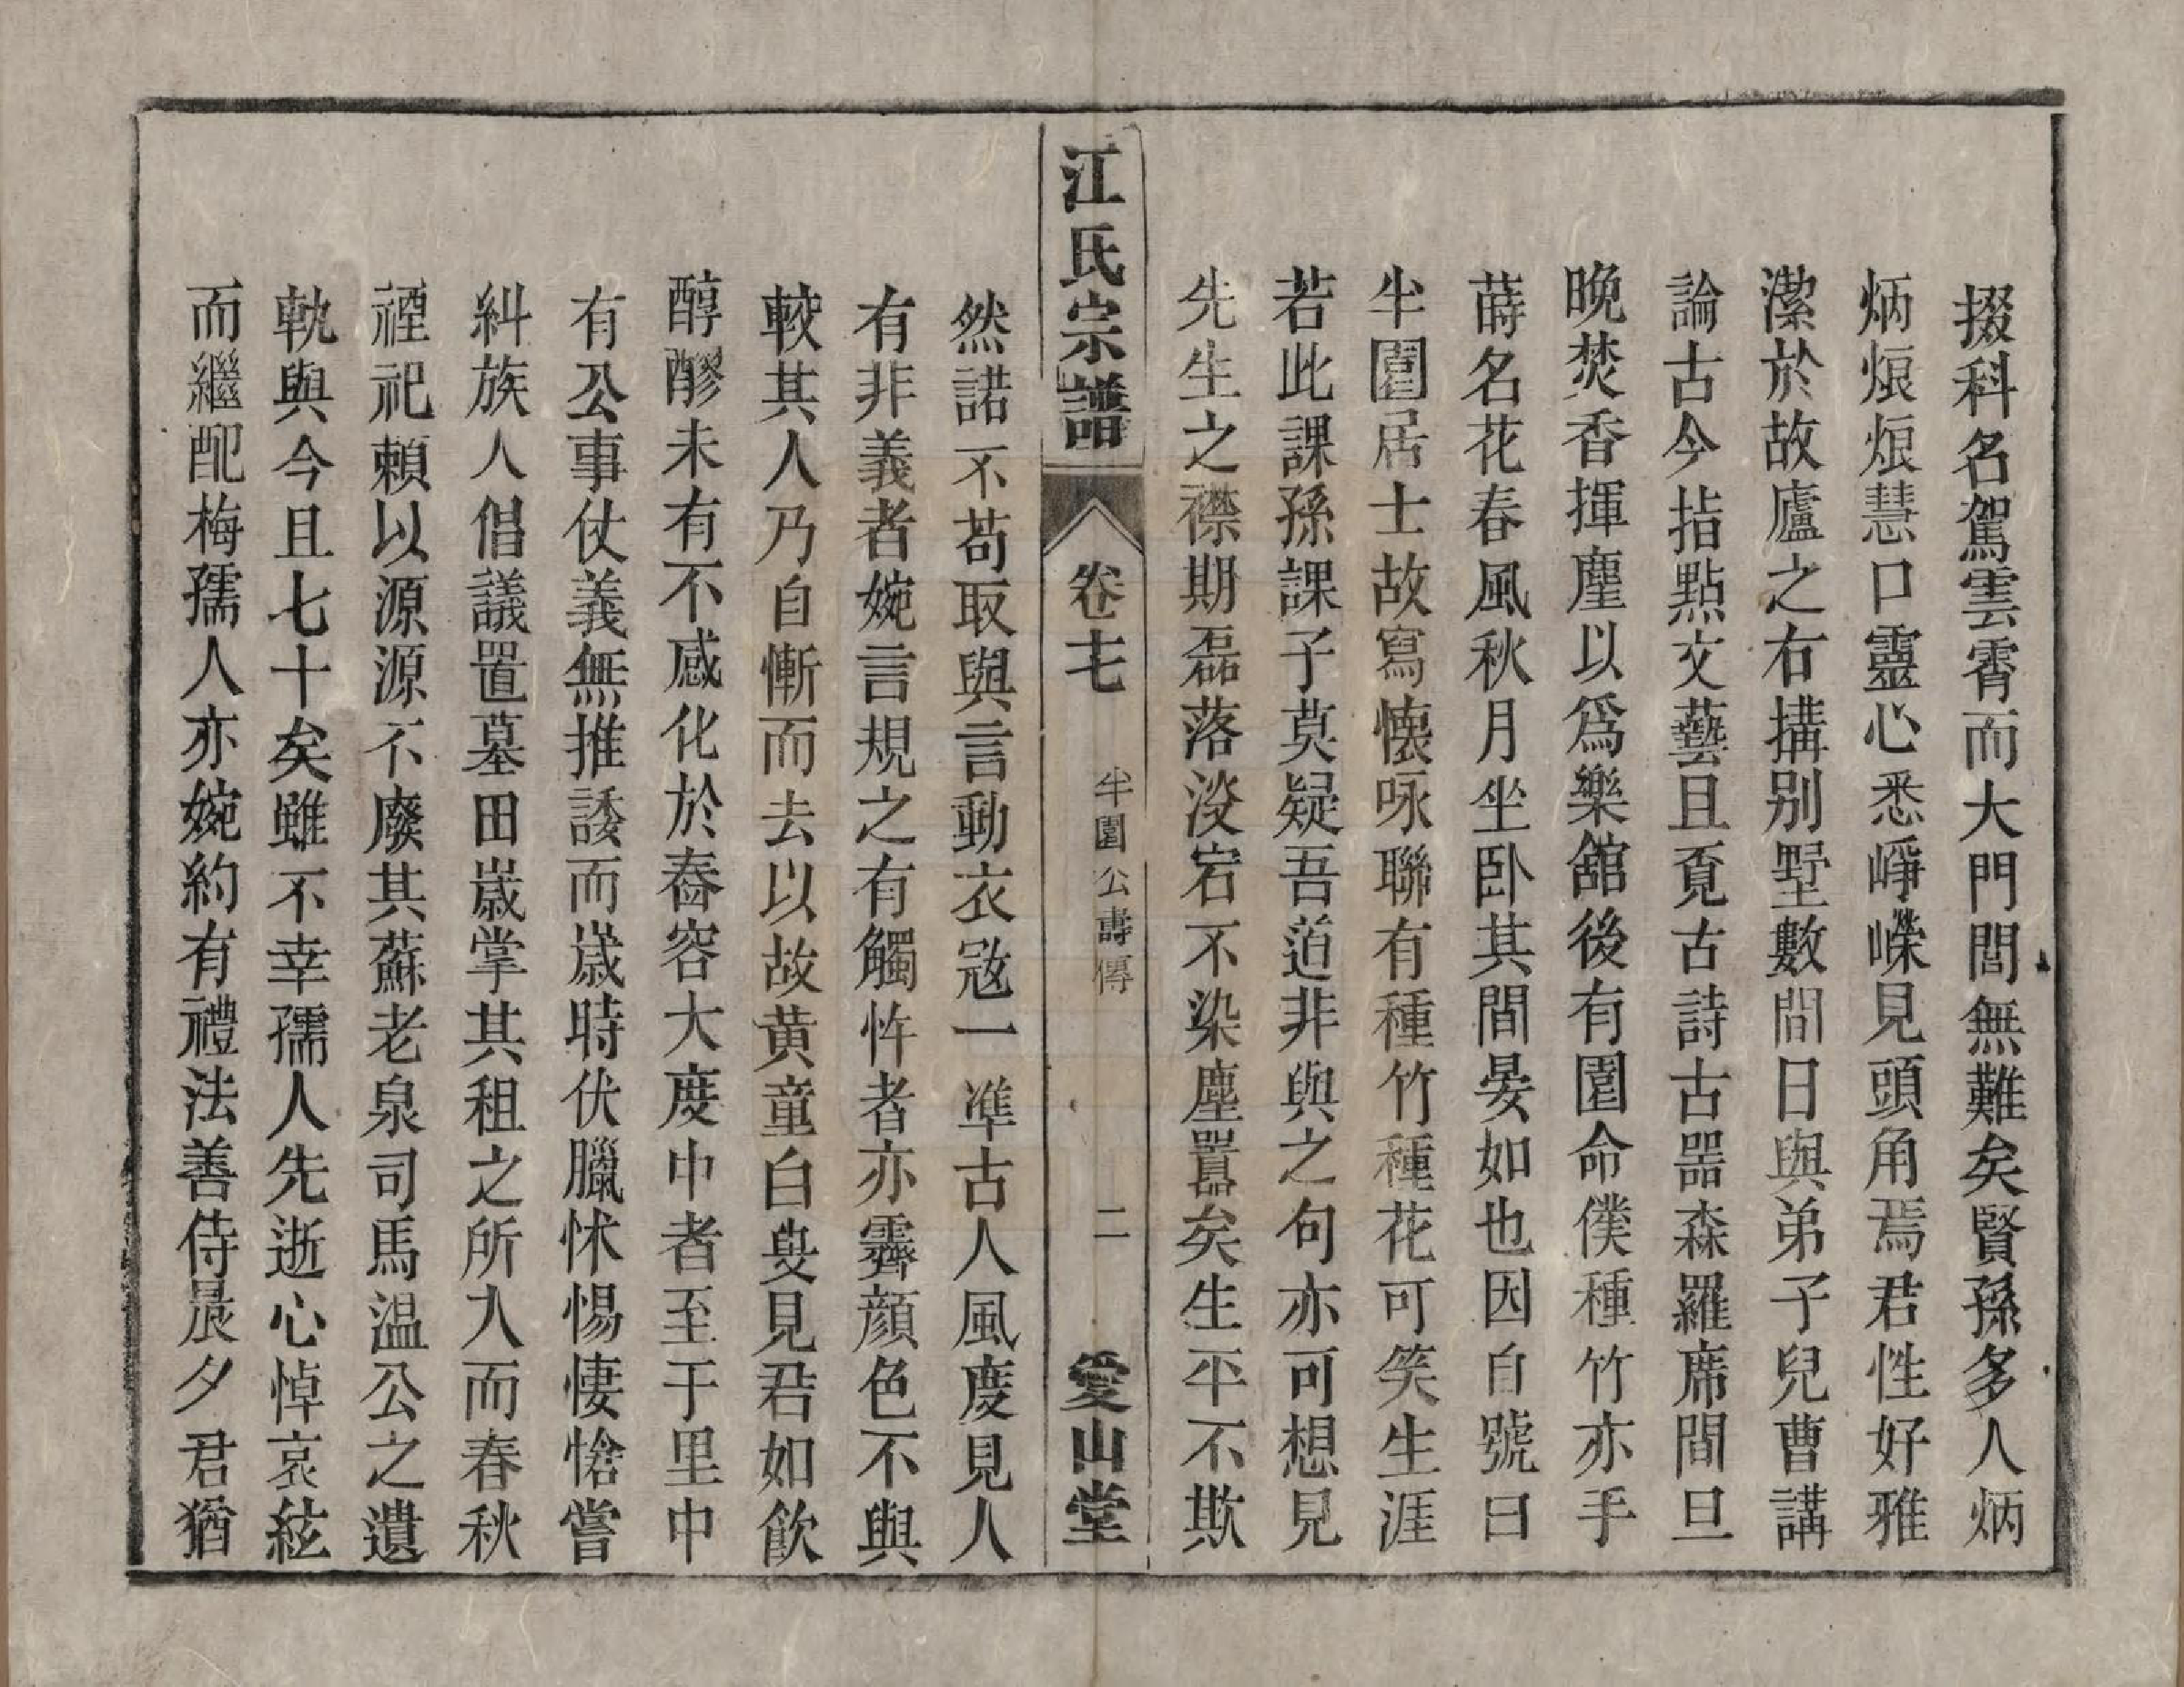 掇科名駕雲霄而大門閭無難矣賢孫多人炳
炳烺烺慧口靈心悉崢嶸見頭角焉君性好雅
潔於故廬之右搆别墅數間日與弟子兒曹講
論古今指點文藝且覔古詩古噐森羅席間旦
晚焚香揮麈以爲樂舘後有園命僕種竹亦手
蒔名花春風秋月坐卧其間晏如也因自號曰
半園居士故寫懐咏聯有種竹種花可笑生涯
若此課孫課子莫疑吾道非與之句亦可想見
先生之襟期磊落淡宕不染塵囂矣生平不欺
江氏宗譜
卷七
半園公壽傳
二
愛山堂
然諾不苟取與言動衣冠一準古人風度見人
有非義者婉言規之有觸忤者亦霽顔色不與
較其人乃自慚而去以故黄童白叟見君如飲
醇醪未有不感化於舂容大度中者至于里中
有公事仗義無推諉而嵗時伏臘怵惕悽愴嘗
糾族人倡議置墓田嵗掌其租之所入而春秋
禋祀賴以源源不廢其蘇老泉司馬温公之遺
軌與今且七十矣雖不幸孺人先逝心悼哀絃
而繼配梅孺人亦婉約有禮法善侍晨夕君猶